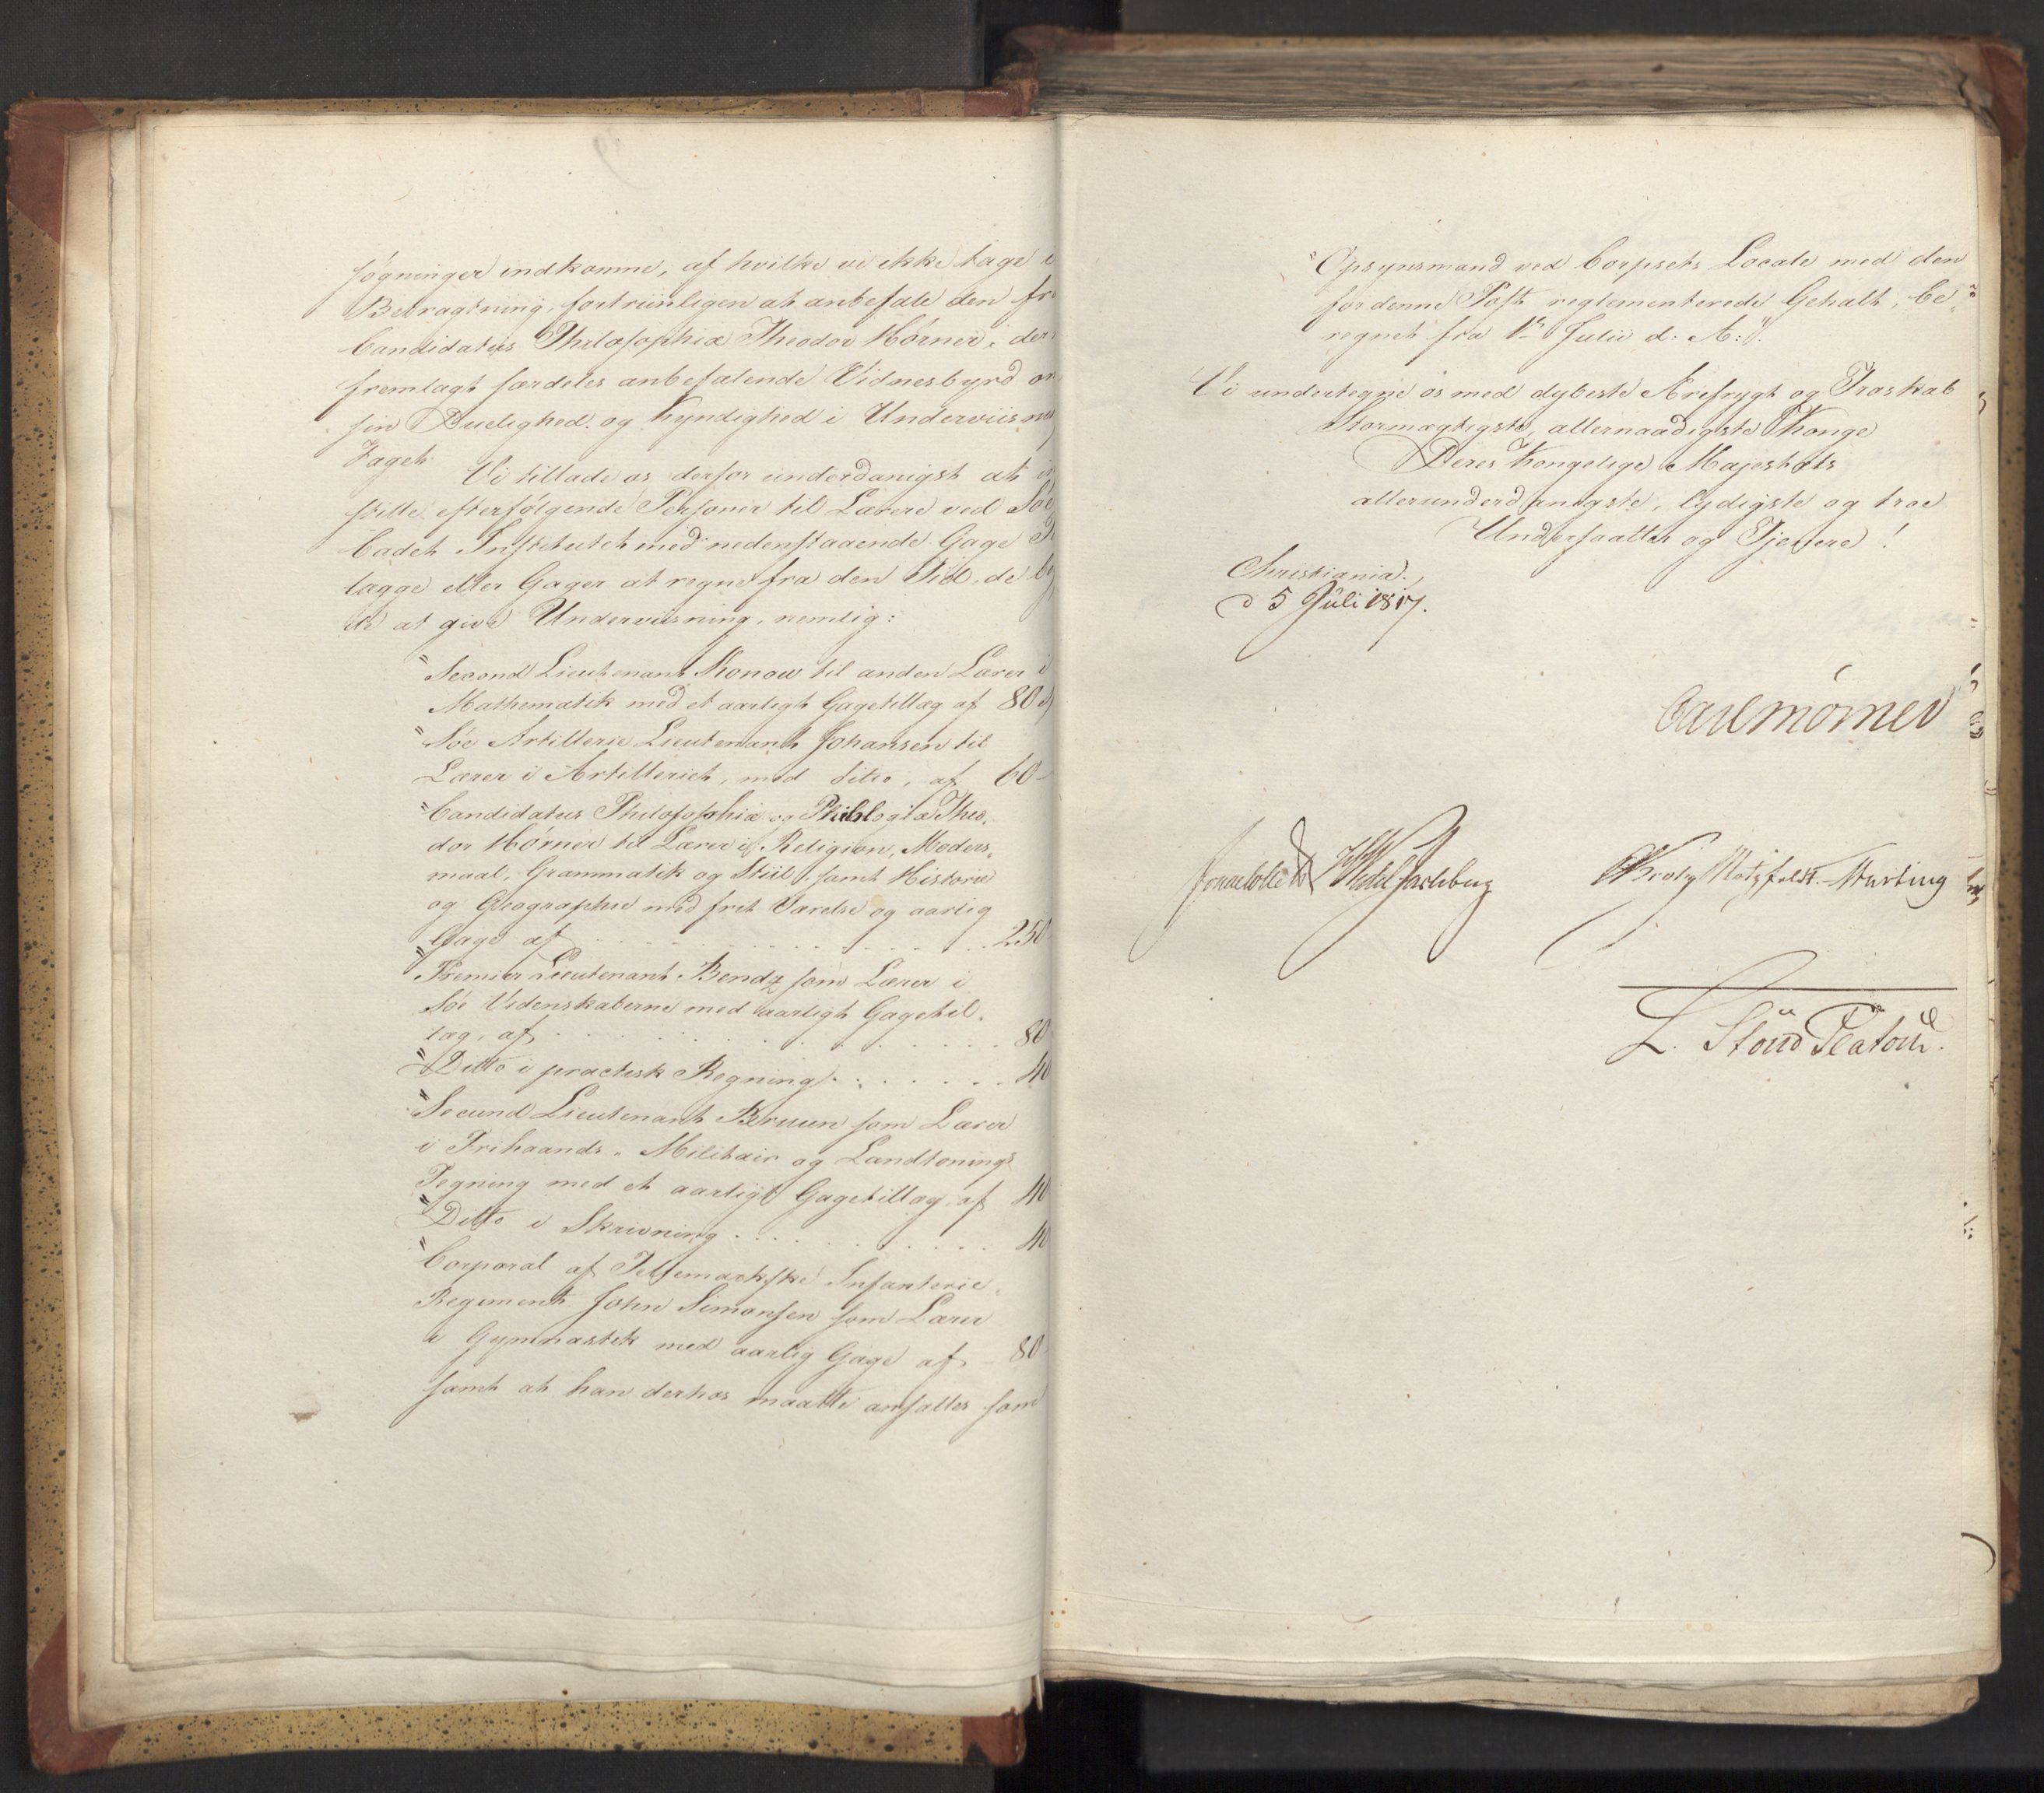 søgninger indkomne, af hvilke vi ikke tage i
Betragtning, fortrinligen at anbefale den fra
Candidatus Philosophiæ Theodor Hörner, der
fremlagt særdeles anbefalende Vidnesbyrd om
sin Duelighed og Kyndighed i Underviisnings
Faget.
Vi tillade os derfor underdanigst at
stille efterfølgende Personer til Lærere ved Søe
Cadet Institutet med nedenstaaende Gage
lægge eller Gager at regne fra den Tid, de
te at give Underviisning, nemlig:
"Second Lieutenant Konow til anden Lærer i
Mathematik med et aarligt Gagetillæg af 80
"Søe Artillerie Lieutenant Johansen til
Lærer i Artilleriet, med ditto, af 60
"Candidatus Philosophiæ og Philologiæ Theo-
dor Hörner til Lærer i Religion, Moders-
maal, Grammatik og Stiil, samt Historie
og Geographie med frit Værelse og aarlig
Gage af . . . . . . . . . . . 250
"Premier Lieutenant Bendz som Lærer i
Søe Videnskaberne med aarligt Gagetil-
læg, af . . . . . . . . . . . 80
"Ditto i practisk Regning . . . . . . 40
"Secund Lieutenant Bruun som Lærer
i Frihaands- Militair og Landtonings
Tegning med et aarligt Gagetillæg af 40
"Ditto i Skrivning . . . . . . . . 40
"Corporal af Tellemarkske Infanterie-
Regiment John Simonsen som Lærer
i Gymnastik med aarlig Gage af - 80
samt at han derhos maatte ansættes som
"Opsynsmand ved Corpsets Locale med den
for denne Post reglementerede Gehalt, be-
regnet fra 1te Julii d: A:".
Vi undertegne os med dybeste Ærefrygt og Troskab
Stormægtigste, allernaadigste Konge
Deres Kongelige Majestæts
allerunderdanigste, lydigste og troe
Undersaatter og Tjenere!
Christiania,
d 5 Juli 1817.
Carl Mörner
Sommerhielm Wedel Jarlsberg Krohg Motzfeldt. Fasting
L. Stoud Platou.